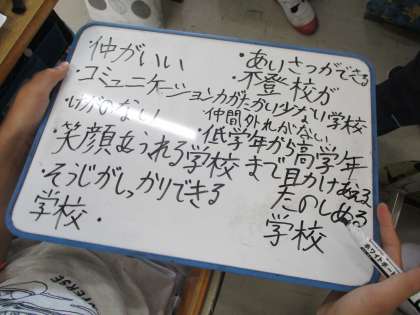 仲がいい
・コミュニケーション力がたかい
いじめのない
・笑顔あふれる学校
・そうじがしっかりできる
学校・
・あいさつができる
・不登校が
少ない学校
仲間外れがない
低学年から高学年
まで助けあえる
たのしめる
学校
ホワイトボード